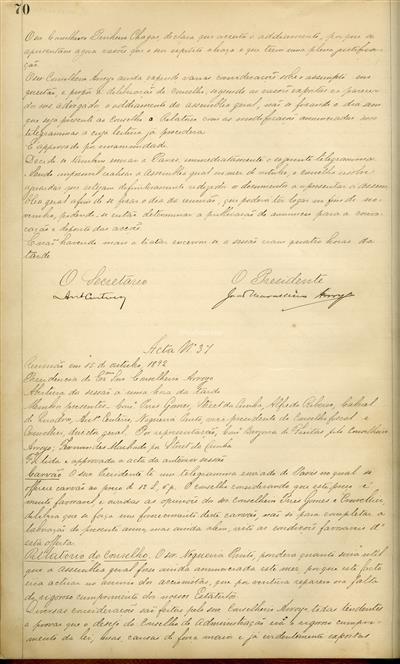 70
O sr. Conselheiro Pinheiro Chagas declara que acceita o addiamento, porque se
apresentam agora razões que o seu espirito abraça e que teem uma plena justifica-
ção.
O sr. Conselheiro Arroyo ainda expende varias considerações sobre o assumpto em
questão, e propõe á deliberação do Conselho, segundo as razões expostas e o parecer
do sr. advogado o addiamento da assemblea geral, não se fixando o dia sem
que seja presente ao Conselho o Relatorio com as modificações annunciadas nos
telegrammas a cuja leitura já procedera.
É approvado por unanimidade.
Decide-se tambem enviar a Paris, immediatamente o seguinte telegramma:
Sendo impossivel realisar a Assemblea geral no mez d'outubro, o conselho resolve
aguardar que estejam definitivamente redigidos os documentos a apresentar á assem-
blea geral afim de se fixar o dia da reunião, que poderá ter logar em fins de no-
vembro, podendo-se então determinar a publicação de annuncios para a convo-
cação e deposito das acções.
E não havendo mais a tratar encerrou-se a sessão eram quatro horas da
tarde.
O Secretario
O Presidente
Acta Nº 37
Reunião em 15 de outubro 1892
Presidencia do Exmo Snr. Conselheiro Arroyo
Abertura da sessão á uma hora da tarde
Membros presentes: Conses Pires Gomes, Alfredo Ribeiro, Cabral
de Quadros, Antº Centeno, Nogueira Pinto vice-presidente do Conselho fiscal e
director geral. Por representação, Conse
Arroyo; Fernandes Machado pelo Visct. da Cunha
Foi lida e approvada a acta da anterior sessão
Carvão. O snr. Presidente lê um telegramma enviado de Paris no qual se
offerece carvão ao preço de 12 s. 6 p. O conselho considerando que este preço é
muito favoravel, e ouvidas as opiniões do sr. Conselheiro Pires Gomes e
delibera que se faça um fornecimento deste carvão não só para completar a
do presente anno, mas ainda alem, até as condições favoraveis d'
esta offerta.
Relatorio do Conselho. O sr. Nogueira Pinto, pondera quanto seria util
que a assemblea geral fosse ainda annunciada este mez porque este facto
iria actuar no animo dos accionistas, que por ventura reparem na falta
do rigoroso cumprimento dos nossos Estatutos.
Diversas considerações são feitas pelo snr. Conselheiro Arroyo todas tendentes
a provar que o desejo do Conselho de Administração era o rigoroso cumpri-
mento da lei, mas, causas de força maior e já evidentemente expostas